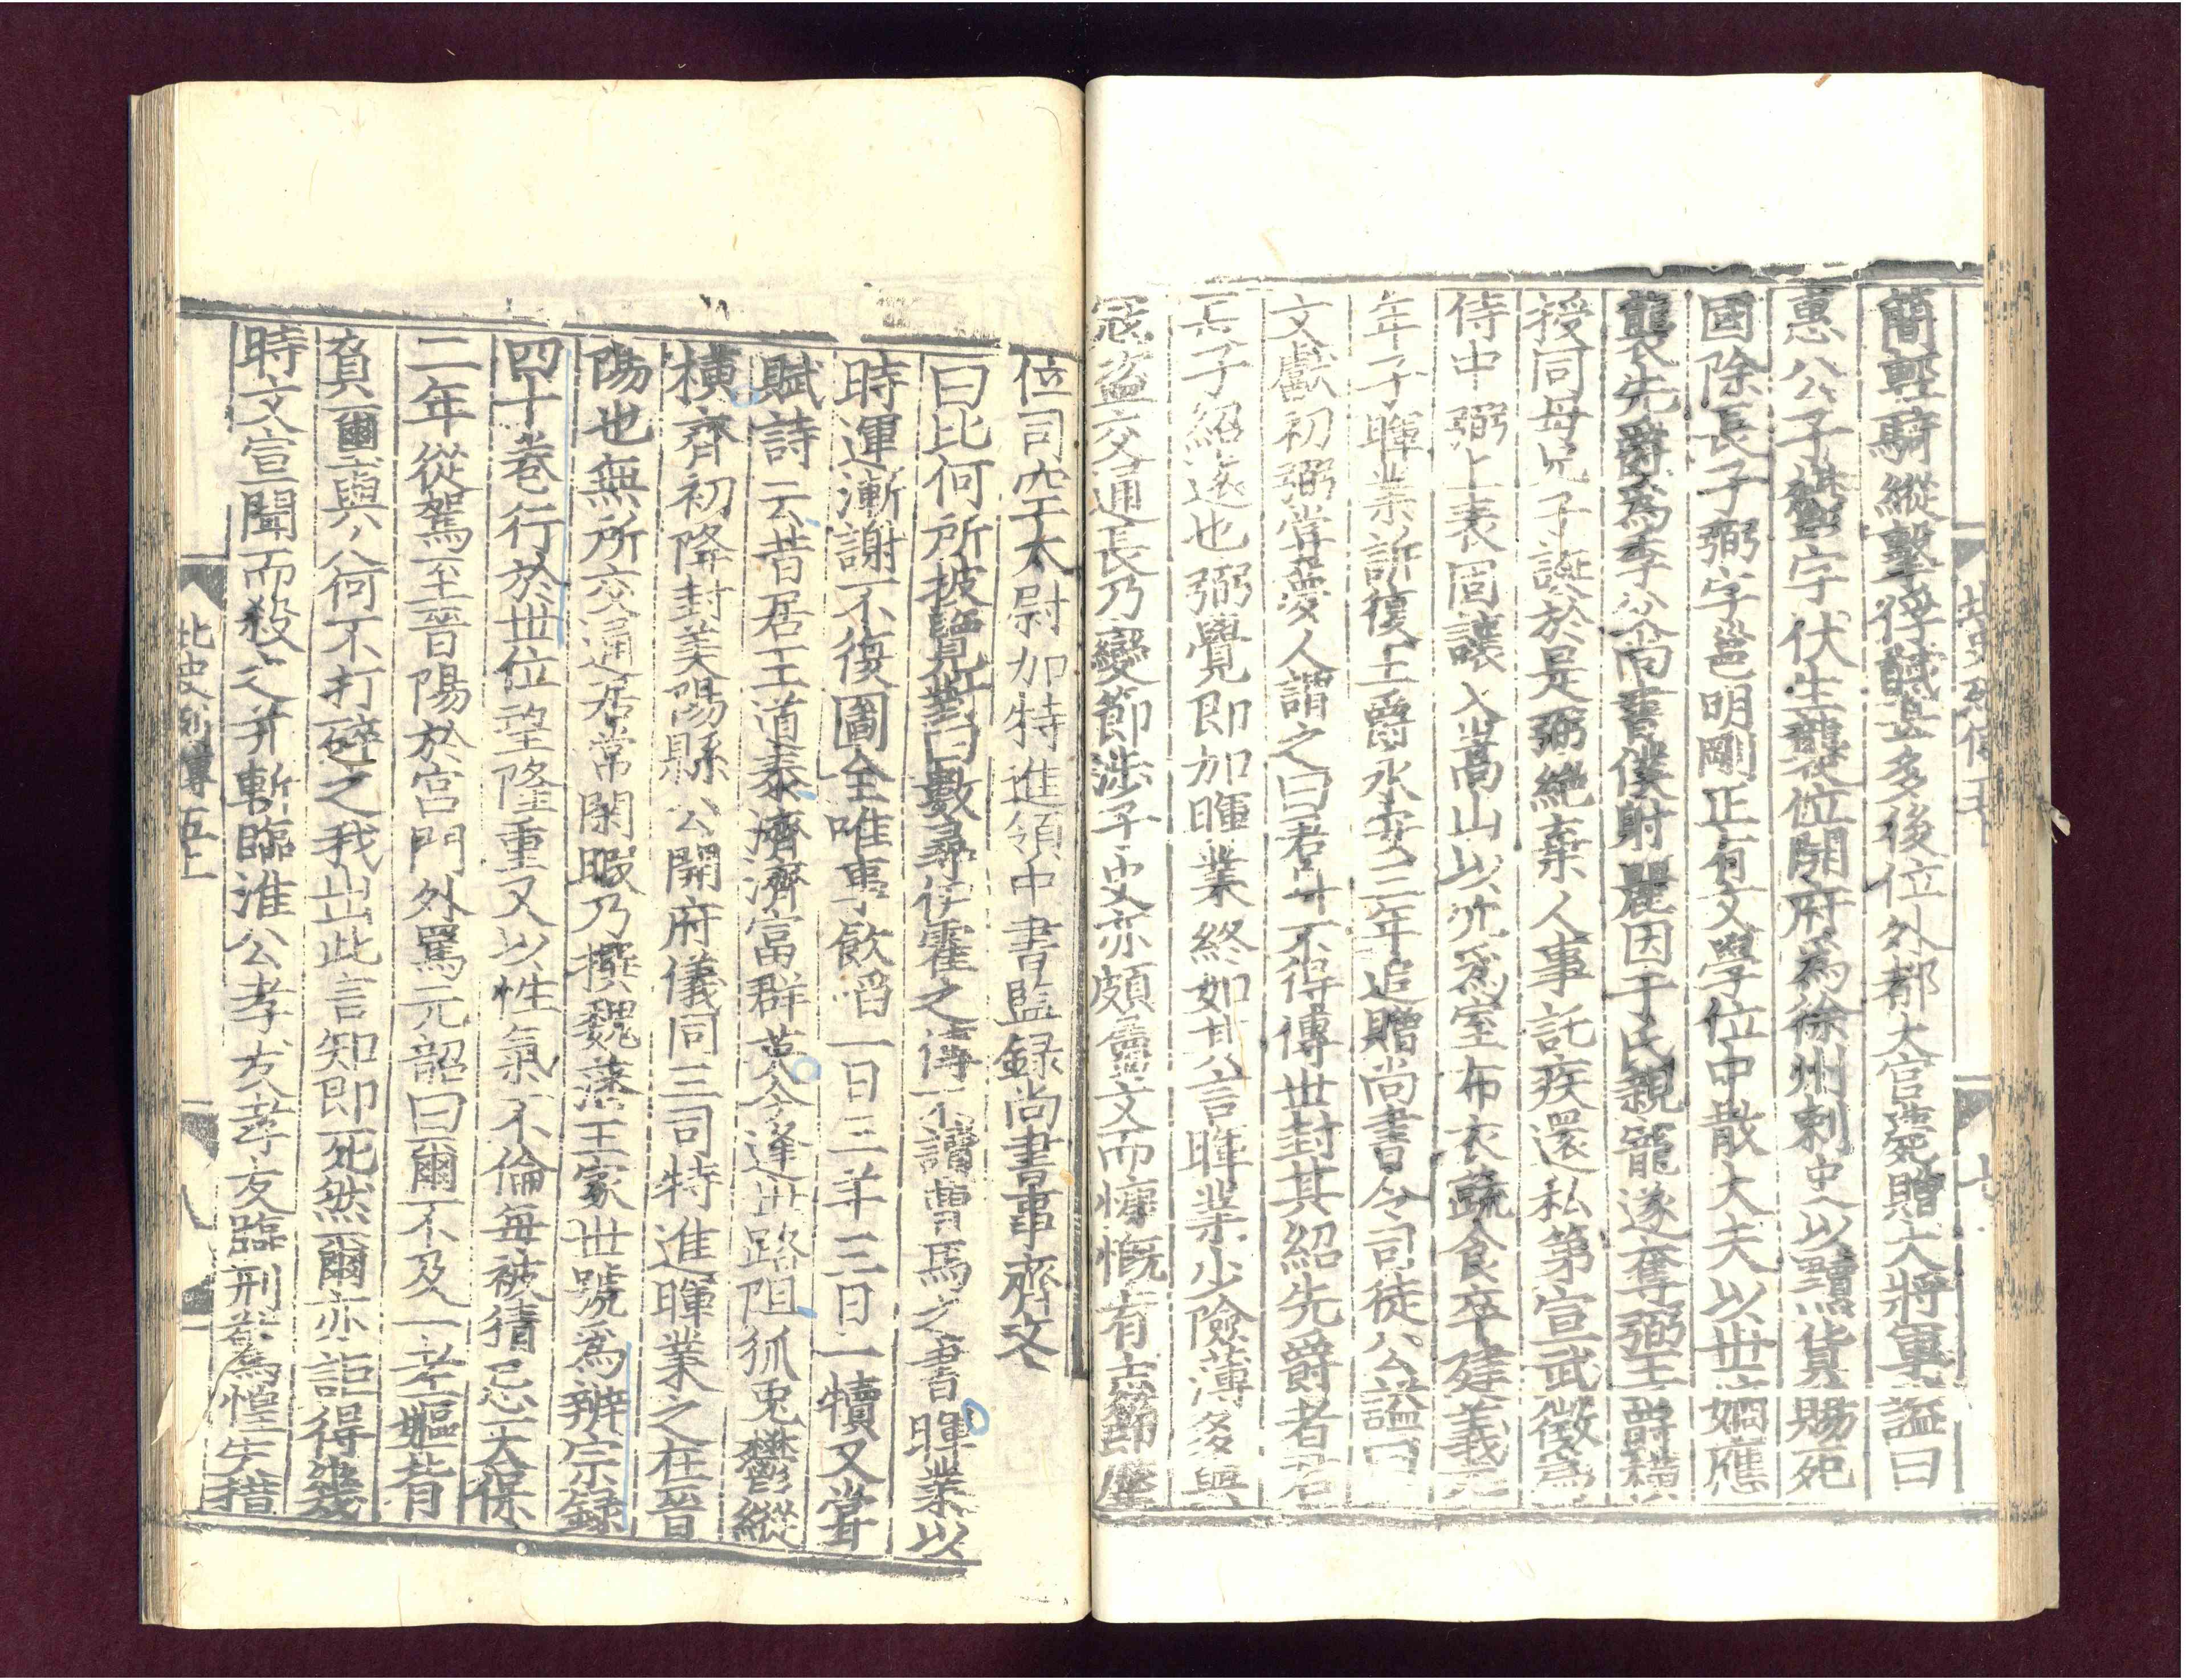 簡輕騎縱擊俘馘甚多後位外都大官薨贈大將軍謚曰
惠公子鬱字伏生襲位開府爲徐州刺史以黷貨賜死
國除長子弼字邕明剛正有文學位中散大夫以世嫡應
襲先爵爲季父尚書僕射麗因于氏親寵遂奪弼王爵橫
授同母兄子誕於是弼絶棄人事託疾還私第宣武徵爲
侍中弼上表固讓入嵩山以穴爲室布衣蔬食卒建義元
年子暉業訴復王爵永安三年追贈尚書令司徒公謚曰
文獻初弼嘗夢人謂之曰君身不得傳世封其紹先爵者君
長子紹遠也弼覺即加暉業終如其言暉業少險薄多與
寇盜交通長乃變節涉子史亦頗屬文而慷慨有志節歷
位司空太尉加特進領中書監録尚書事齊文
曰比何所披覽對曰數尋伊霍之傳不讀曹馬之書暉業以
時運漸謝不復圖全唯事飲啗一日三羊三日一犢又嘗
賦詩云昔居王道泰濟濟富群英今逢世路阻狐兎鬱縱
橫齊初降封美陽縣公開府儀同三司特進暉業之在晉
陽也無所交通居常閑暇乃撰魏藩王家世號爲辨宗録
四十卷行於世位望隆重又以性氣不倫每被猜忌天保
二年從駕至晉陽於宮門外罵元韶曰爾不及一老嫗背
負璽與人何不打碎之我出此言知即死然爾亦詎得幾
時文宣聞而殺之并斬臨淮公孝友孝友臨刑驚惶失措
北史列傳五上